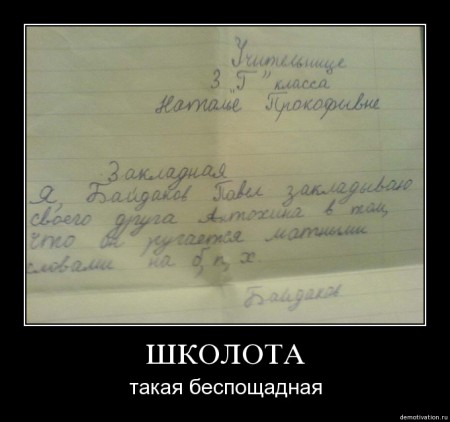 Учительнице
3 "Г" класса
Наталье Прокофывне
Закладная
Я, Байдаков Павел закладываю
своего друга Антохина в том,
что он ругается матными
словами на б, п, х
Байдаков
ШКОЛОТА
такая беспощадная
demotivation.ru